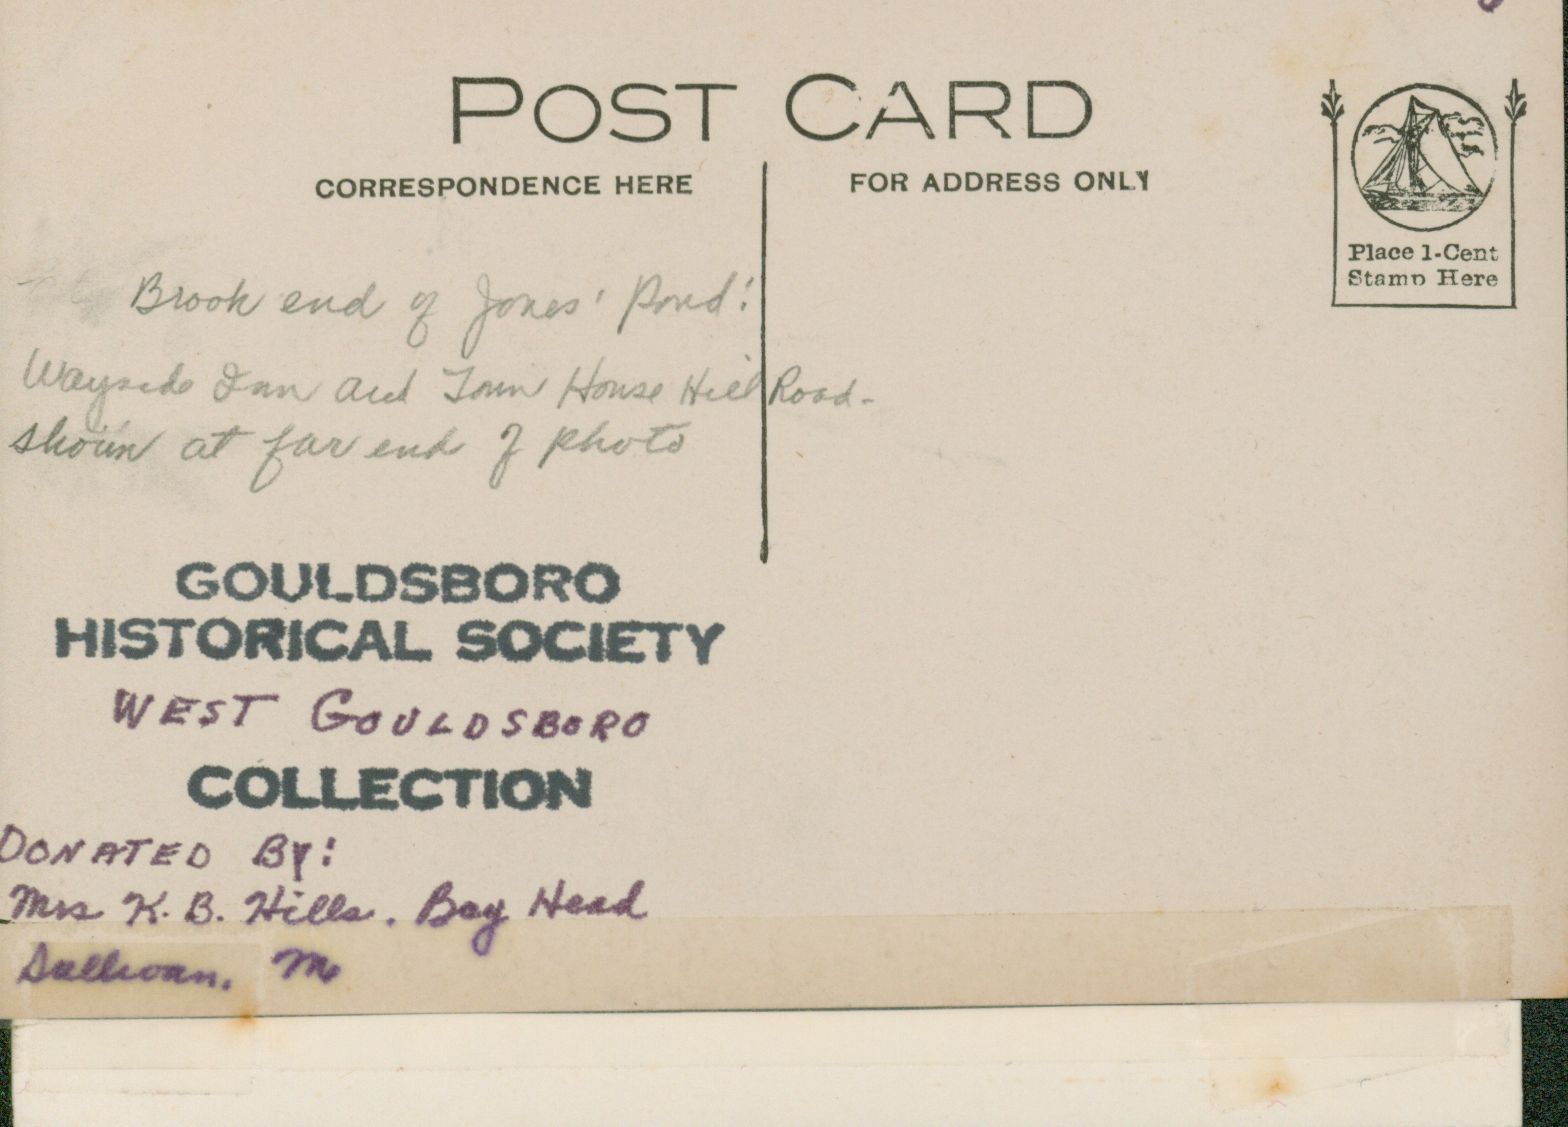 POST CARD
CORRESPONDENCE HERE
FOR ADDRESS ONLY
Place 1-Cent
Stamp Here
Brook end of Jones' Pond:
Wayside Inn and Town House Hill Road-
shown at far end of photo
GOULDSBORO
HISTORICAL SOCIETY
WEST GOULDSBORO
COLLECTION
DONATED BY:
Mrs K. B. Hills. Bay Head
Sullivan. Me